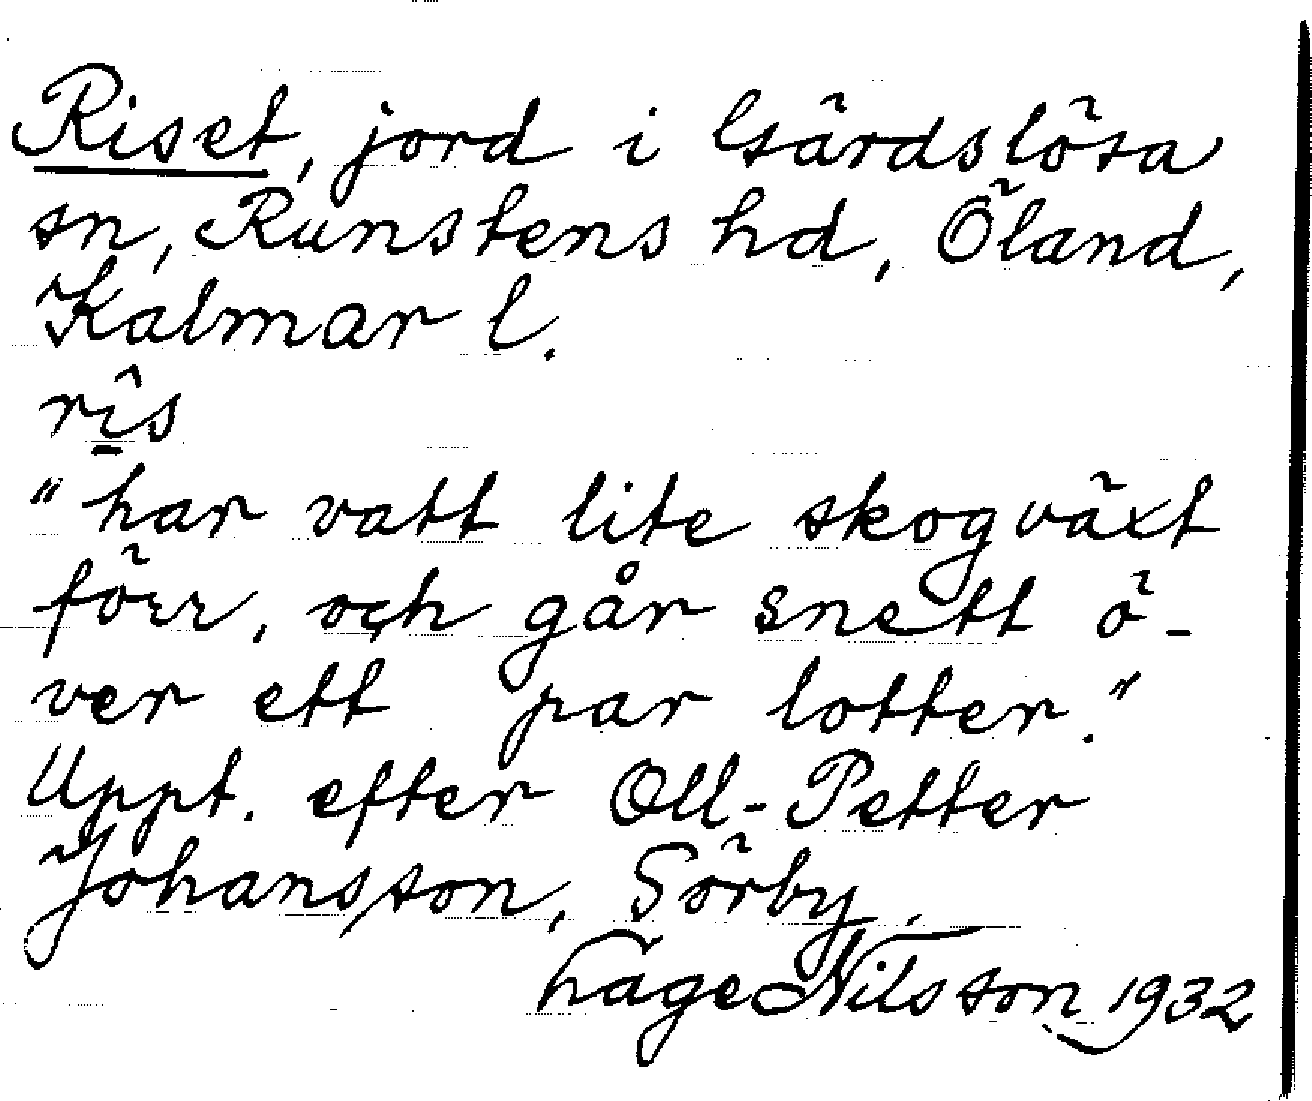 Riset, jord i Gärdslösa
sn, Runstens hd, Öland,
Kalmar l.
rîs
"har vatt lite skogväxt
förr, och går snett ö-
ver ett par lotter."
Uppt. efter Oll-Petter
Johansson, Sörby.
Tage Nilsson 1932